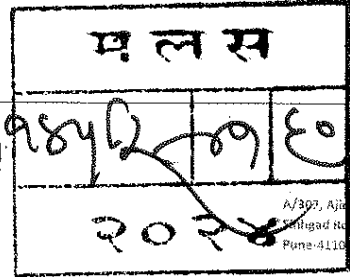 म ल स
१४५२ ७ ६०
२०२४
A/307, Aji
Sinhgad Ro
Pune-4110